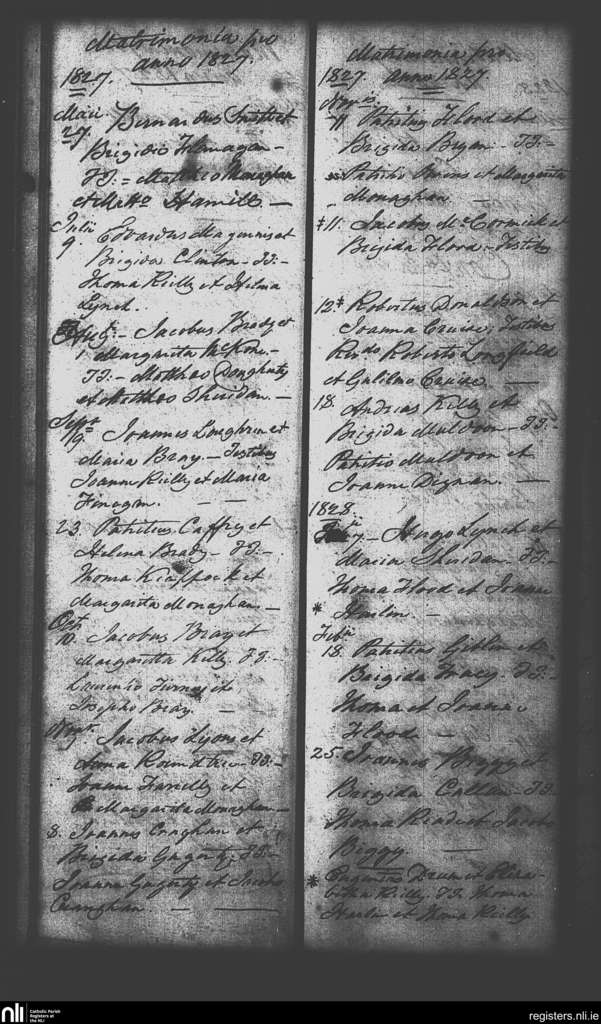 Matrimonia pro
anno 1827.
1827.
Maii
27. Bernardus Smith et
Brigida Flanagan -
TT: = Mattheo Monaghan
et Hamill. —
Julii
9 Edvardus Maginnis et
Brigida Clinton - TT: -
Thoma Reilly et Helena
Lynch.
Augt. - Jacobus Brady et
1 Margarita McKone -
TT: - Mattheo Dougherty
et Mattheo Sheridan. —
Septr
19 Joannes Loughran et
Maria Bray. - Testibus
Joanne Reilly et Maria
Finegan. — —
23. Patritius Caffry et
Helena Brady - TT: -
Thoma et
Margarita Monaghan. —
Octr
10. Jacobus Bray et
Margaritta Kelly. TT: -
Laurentio et
Josepho Bray. —
Jacobus Lyons et
Anna Roundtree - TT: -
Joanne Farrelly et
Margarita Monaghan —
8. Joannes Craghan et
Brigida Gagarty, TT: -
Joanne Gagarty et Jacobo
Craughan. — —
Matrimonia pro
1827. anno 1827
11 Patritius Flood et
Brigida Bryan - TT: =
Patritio Owens et Margarita
Monaghan. —
11. Jacobus McCormick et
Brigida Flood - Testibus
12. Robertus Donaldson et
Joanna Cruise, Testibus
Revdo Roberto Longfield
et Gulielmo Cruise. —
18. Andreas Kelly et
Brigida Muldoon - TT: -
Patritio Muldoon et
Joanne Dignan. —
1828.
7 - Hugo Lynch et
Maria Sheridan. TT: -
Thoma Flood et Joanne
* Harlin. —
Febr
18. Patritius Giblin et
Brigida Tracy. TT: -
Thoma et Joanne
Flood —
25. Joannes Beggy et
Brigida Callan - TT:
Thoma et Jacobo
Beggy —
* Eugenius Drum et Eliza-
betha Reilly. TT. Thoma
Harlin et Thoma Reilly
nli
Catholic Parish
Registers at
the NLI
registers.nli.ie